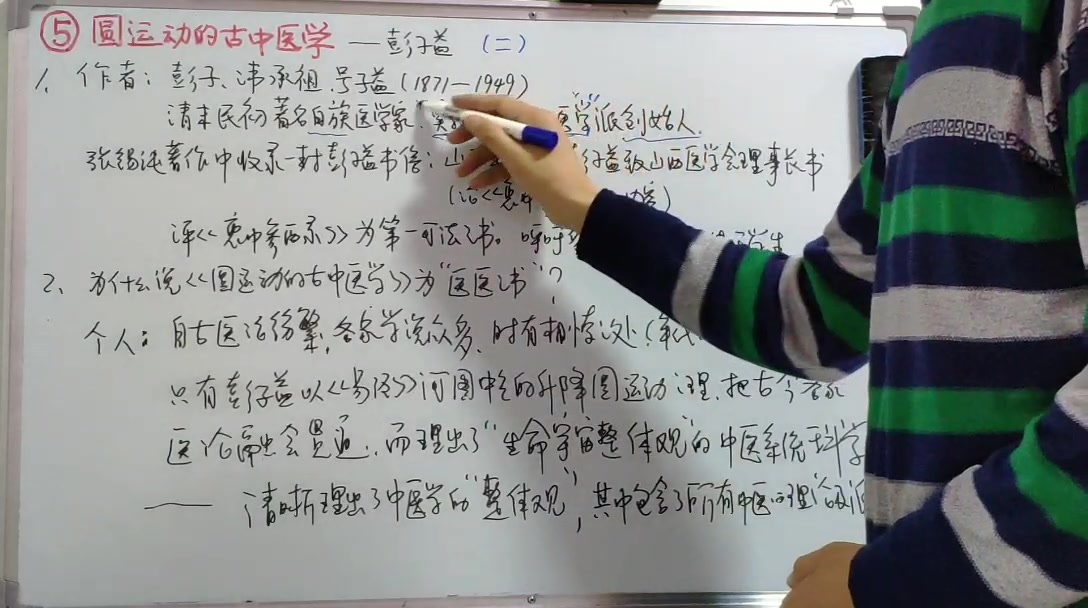 ⑤ 圆运动的古中医学 — 彭子益 (二)
1、作者：彭子、讳承祖、号子益（1871—1949）
清末民初著名白族医学家、 医学"派创始人.
张锡纯著作中收录一封彭子益书信：山 彭子益致山西医学会理事长书
(论<<衷中
评<<衷中参西录>>为第一可法之书。呼吁
2、为什么说<<圆运动的古中医学>>为"医医之书"？
个人：自古医法纷繁,各家学说众多、时有相悖之处（
只有彭子益以<<易经>>河图中气的升降圆运动之理、把古今各家
医论 会贯通、而理出了"生命宇宙整体观"的中医系统科学
—— 清晰理出了中医学的"整体观",其中包含了所有中医的理论及派